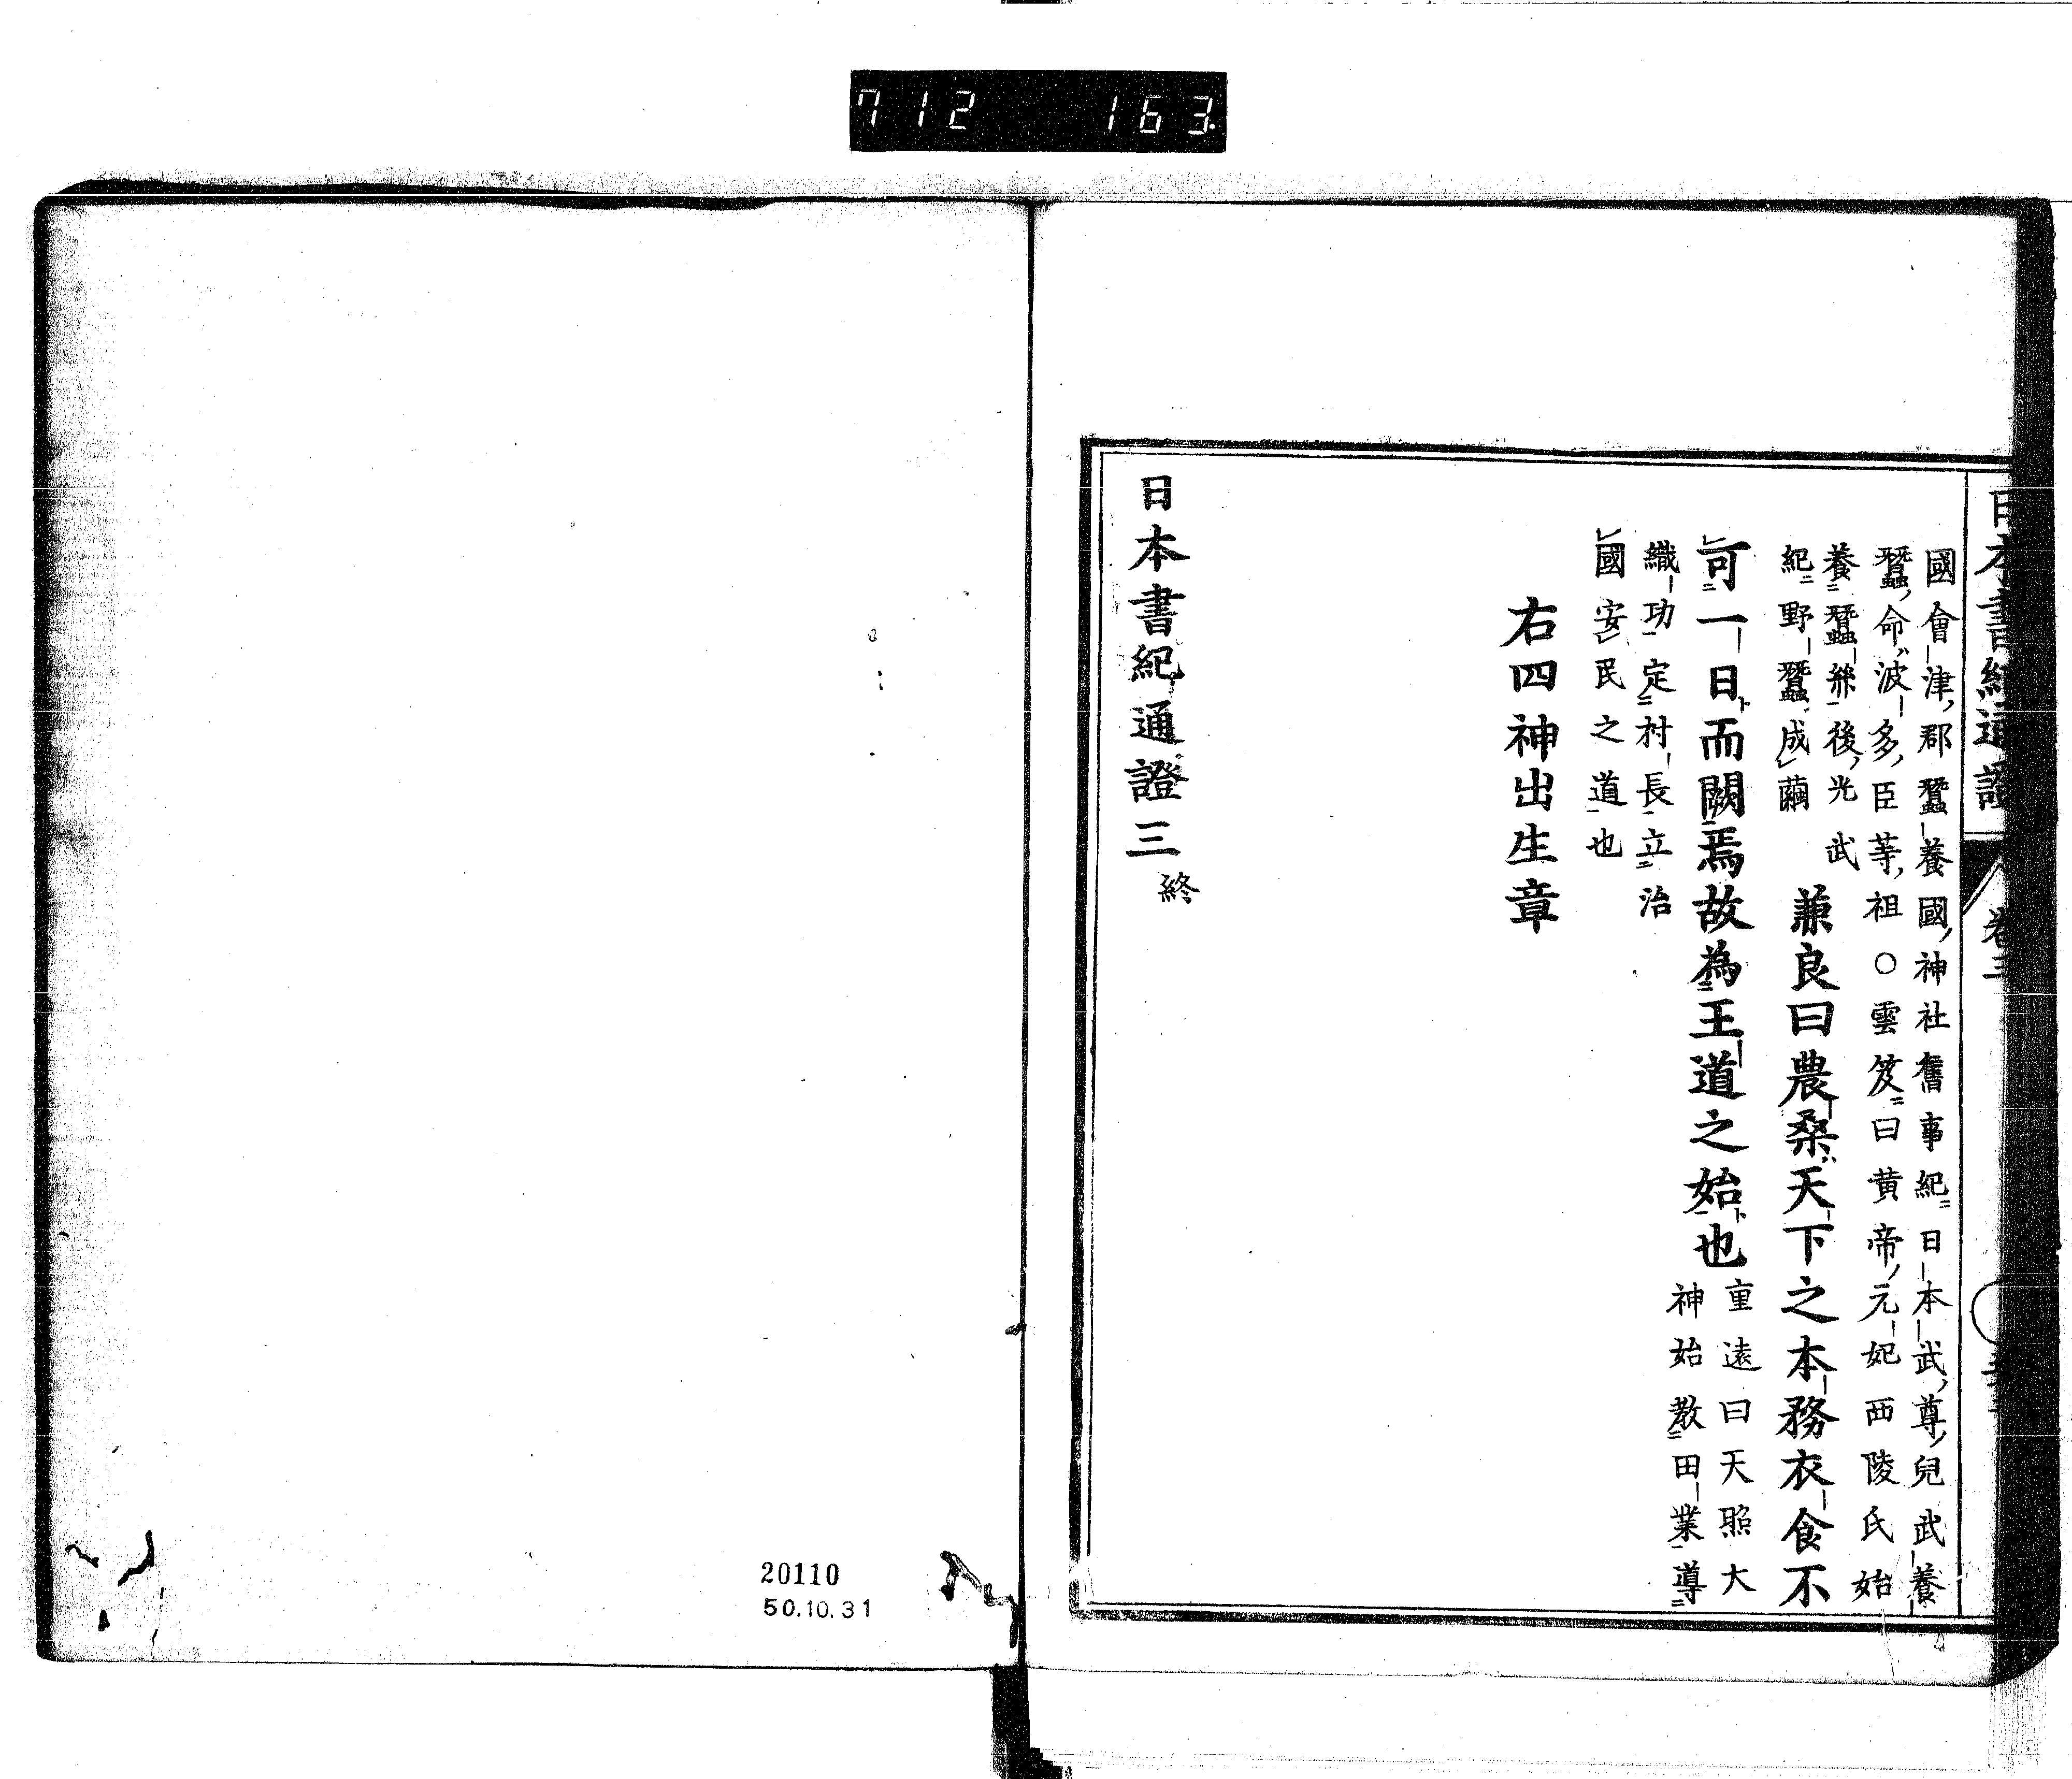 712 163
日本書紀通證
卷三
國會津郡蠶養國神社舊事紀日本武尊兒武養
蠶命波多臣等祖○雲笈曰黃帝元妃西陵氏始
養蠶絲後光武
紀野蠶成繭
兼良曰農桑天下之本務衣食不
可一日而闕焉故為王道之始也
重遠曰天照大
神始教田業導
織功定村長立治
國安民之道也
右四神出生章
日本書紀通證三終
20110
50.10.31